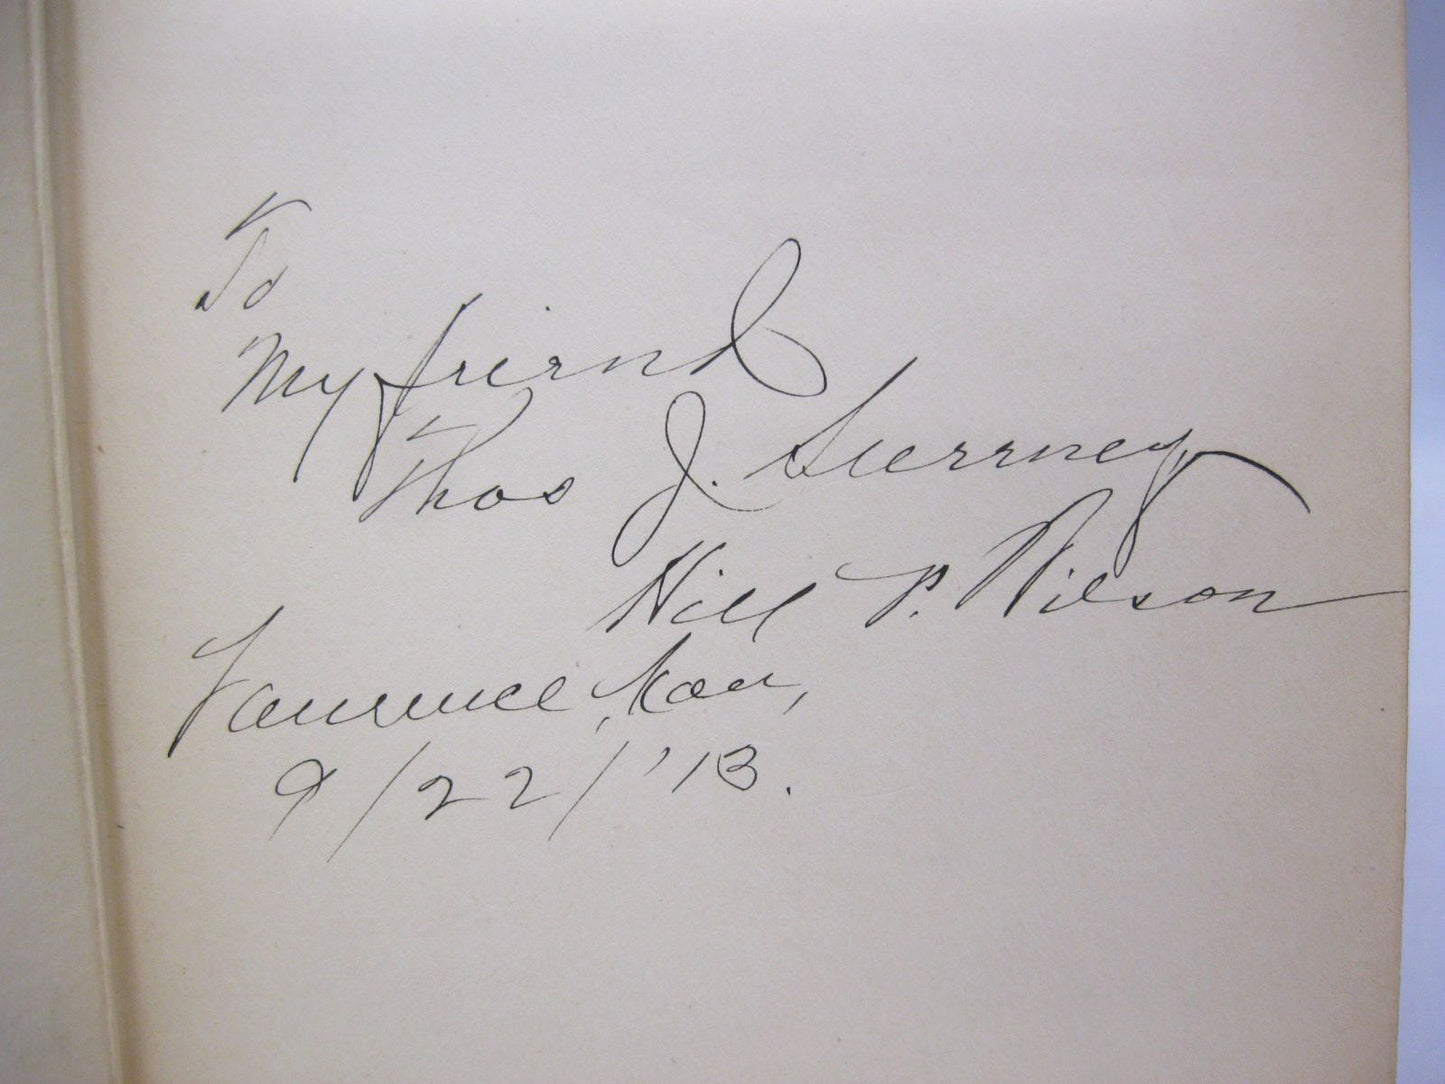 To
My friend
Thos J. Sweeney,
Hill P. Wilson
Lawrence, Kan,
9/22/'13.